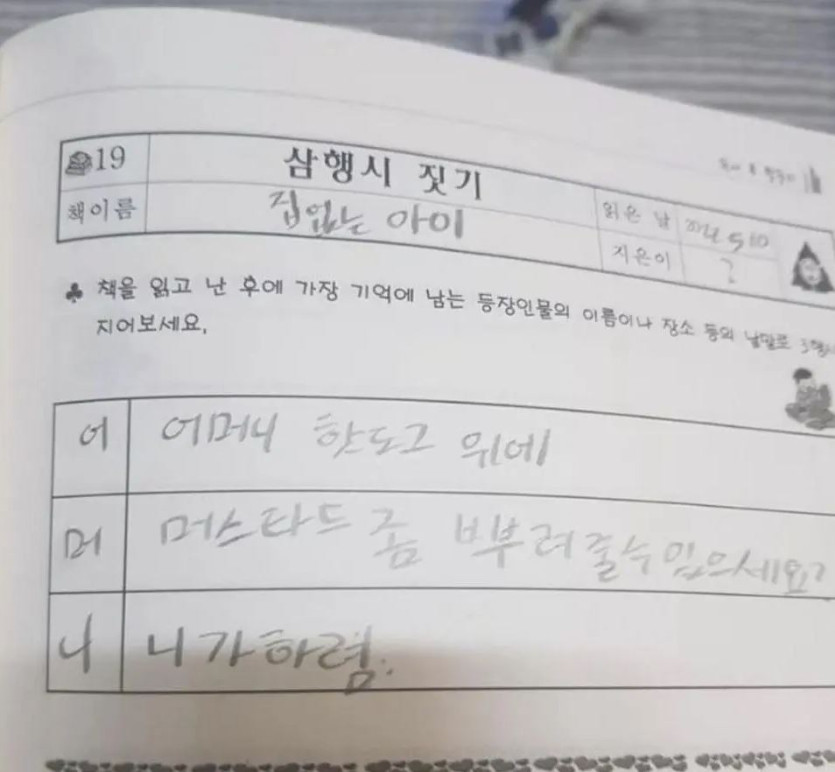 19 삼행시 짓기
책이름 집없는 아이 읽은 날
지은이 ?
책을 읽고 난 후에 가장 기억에 남는 등장인물의 이름이나 장소 등의 낱말로 3행시
지어보세요.
어 어머니 핫도그 위에
머 머스타드 좀 뿌려줄수 있으세요?
니 니가하렴.